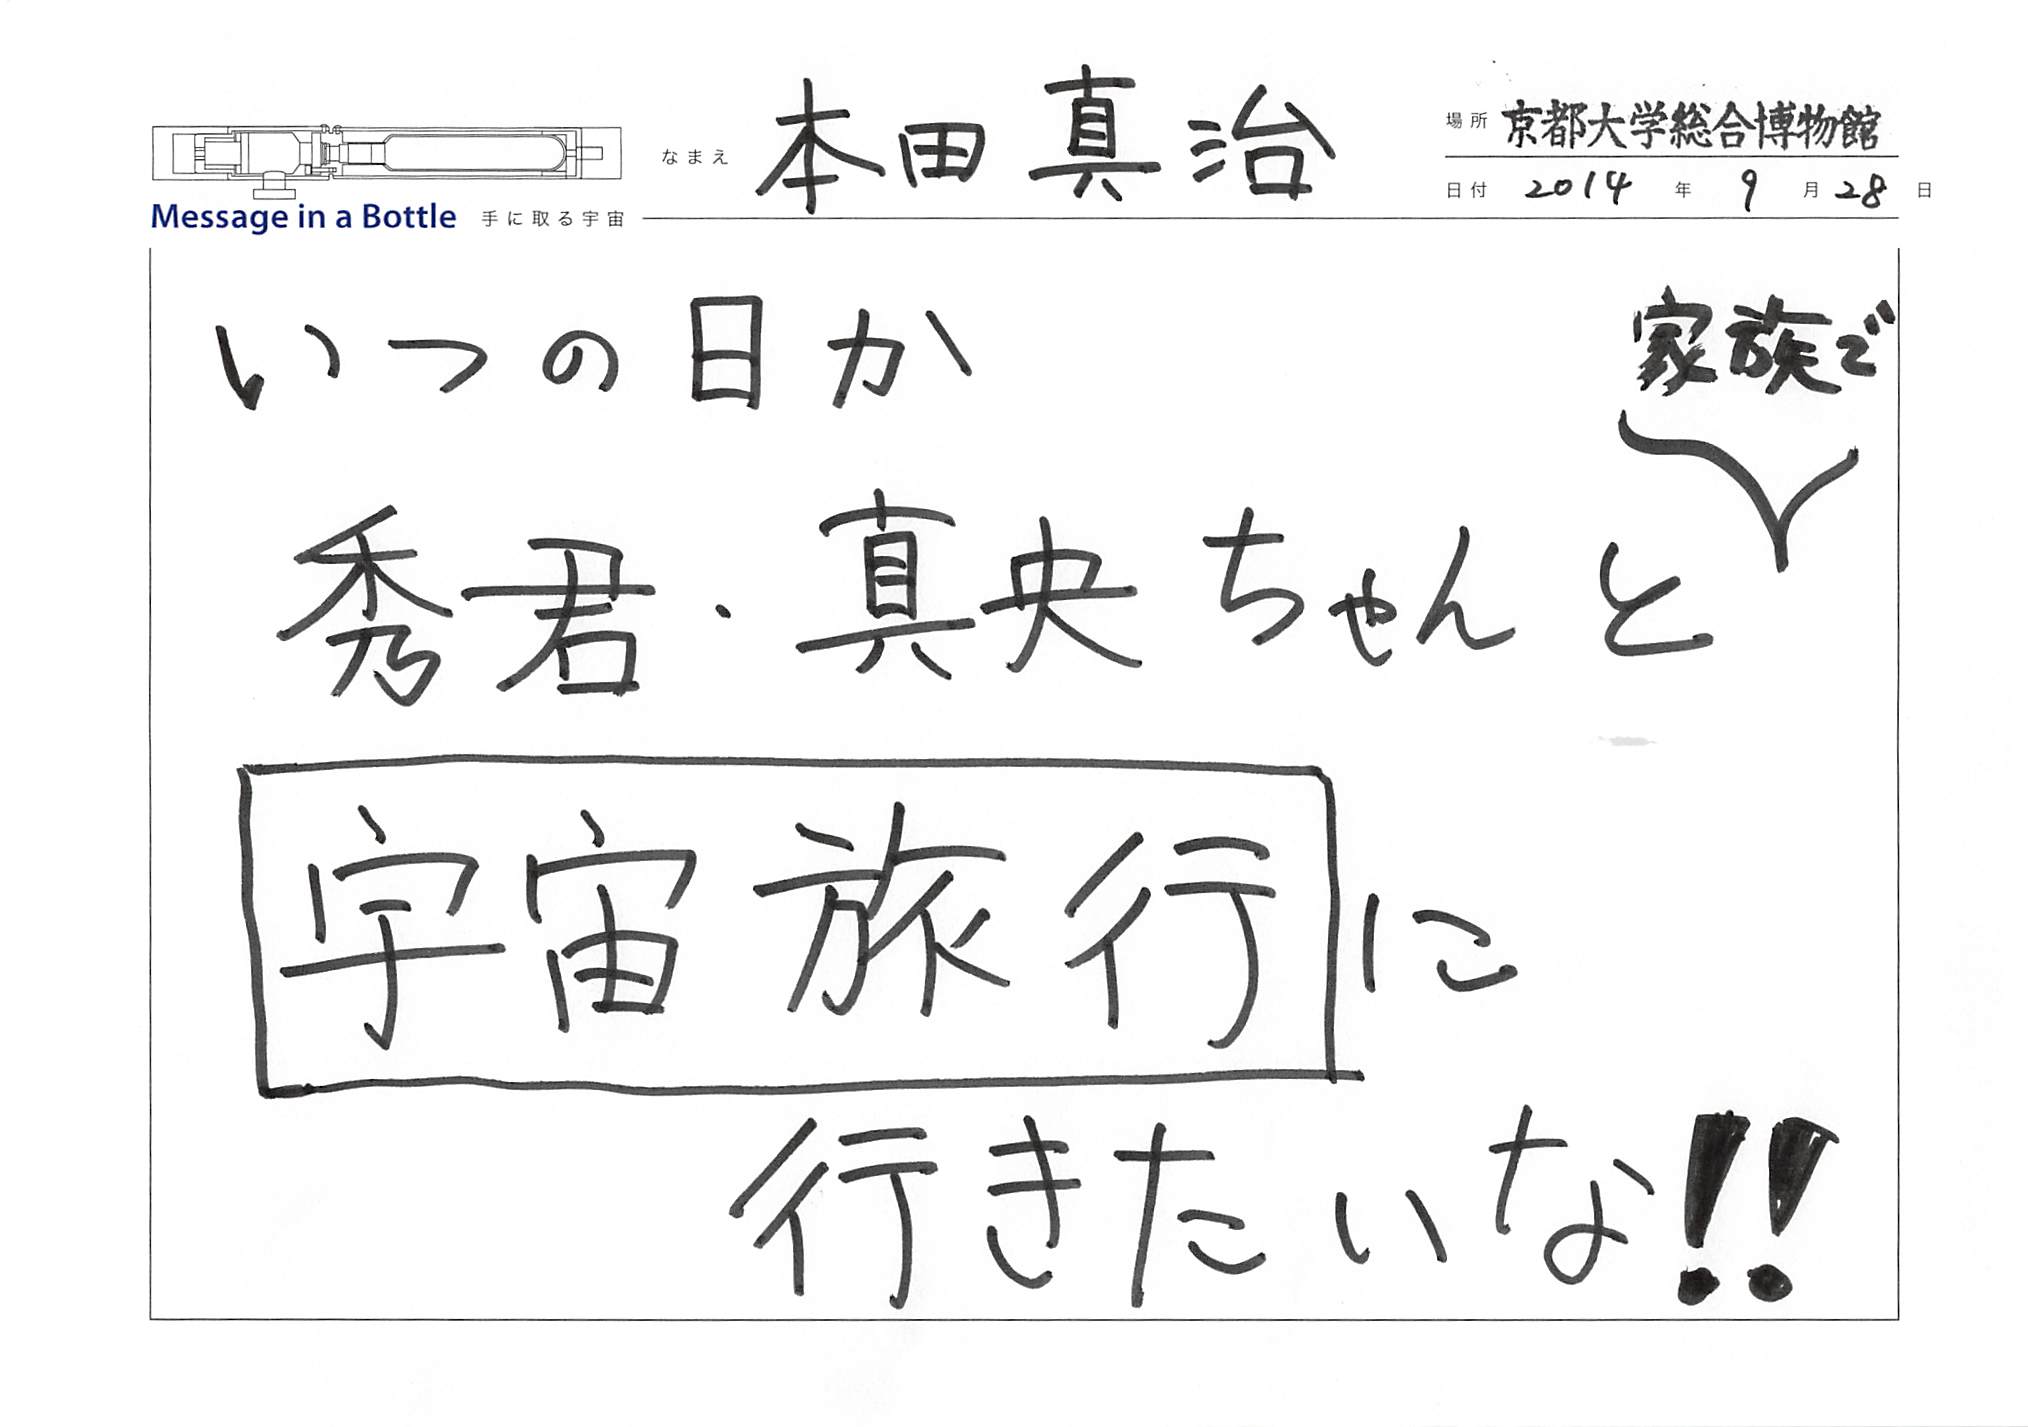 なまえ 本田真治
場所 京都大学総合博物館
日付 2014年9月28日
Message in a Bottle 手に取る宇宙
いつの日か
秀君・真央ちゃんと
家族で
宇宙旅行に
行きたいな!!